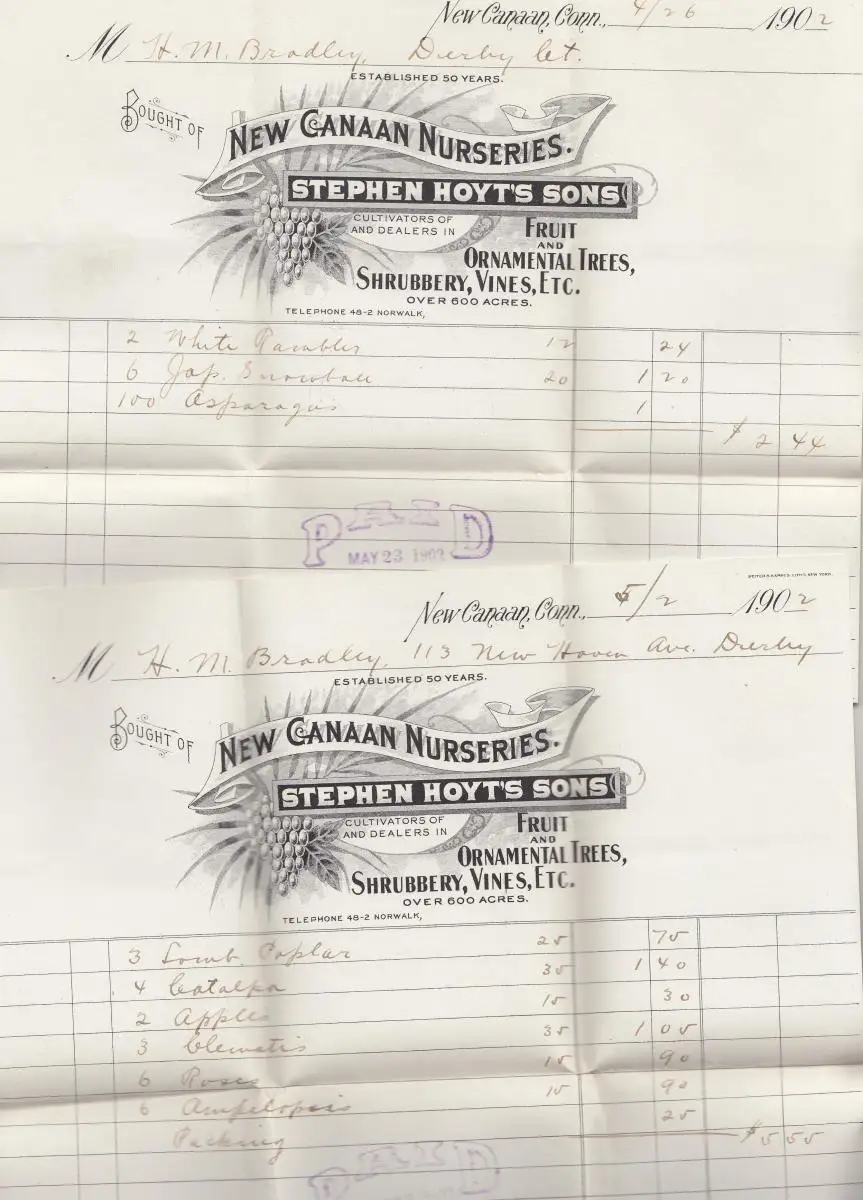 New Canaan, Conn., 4/26 1902
M H. M. Bradley, Derby Ct.
ESTABLISHED 50 YEARS.
BOUGHT OF
NEW CANAAN NURSERIES.
STEPHEN HOYT'S SONS
CULTIVATORS OF AND DEALERS IN
FRUIT
AND
ORNAMENTAL TREES,
SHRUBBERY, VINES, ETC.
OVER 600 ACRES.
TELEPHONE 48-2 NORWALK,
2 White Rambler 12 24
6 Jap. Snowball 20 1 20
100 Asparagus 1 .
$ 2 44
PAID
MAY 23 1902
New Canaan, Conn., 5/2 1902
M H. M. Bradley, 113 New Haven Ave. Derby
ESTABLISHED 50 YEARS.
BOUGHT OF
NEW CANAAN NURSERIES.
STEPHEN HOYT'S SONS
CULTIVATORS OF AND DEALERS IN
FRUIT
AND
ORNAMENTAL TREES,
SHRUBBERY, VINES, ETC.
OVER 600 ACRES.
TELEPHONE 48-2 NORWALK,
3 Lomb. Poplar 25 75
4 Catalpa 35 1 40
2 Apples 15 30
3 Clematis 35 1 05
6 Roses 15 90
6 Ampelopsis 15 90
Packing 25
$5 55
PAID